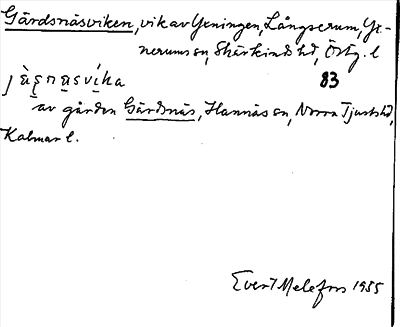 Gärdsnäsviken, vik av Yxningen, Långserum, Yx-
nerums sn, Skärkinds hd, Östg. l
jä̀ṣnạsvi̇́ka 83
av gården Gärdsnäs, Hannäs sn, Norra Tjusts hd,
Kalmar l.
Evert Melefors 1955